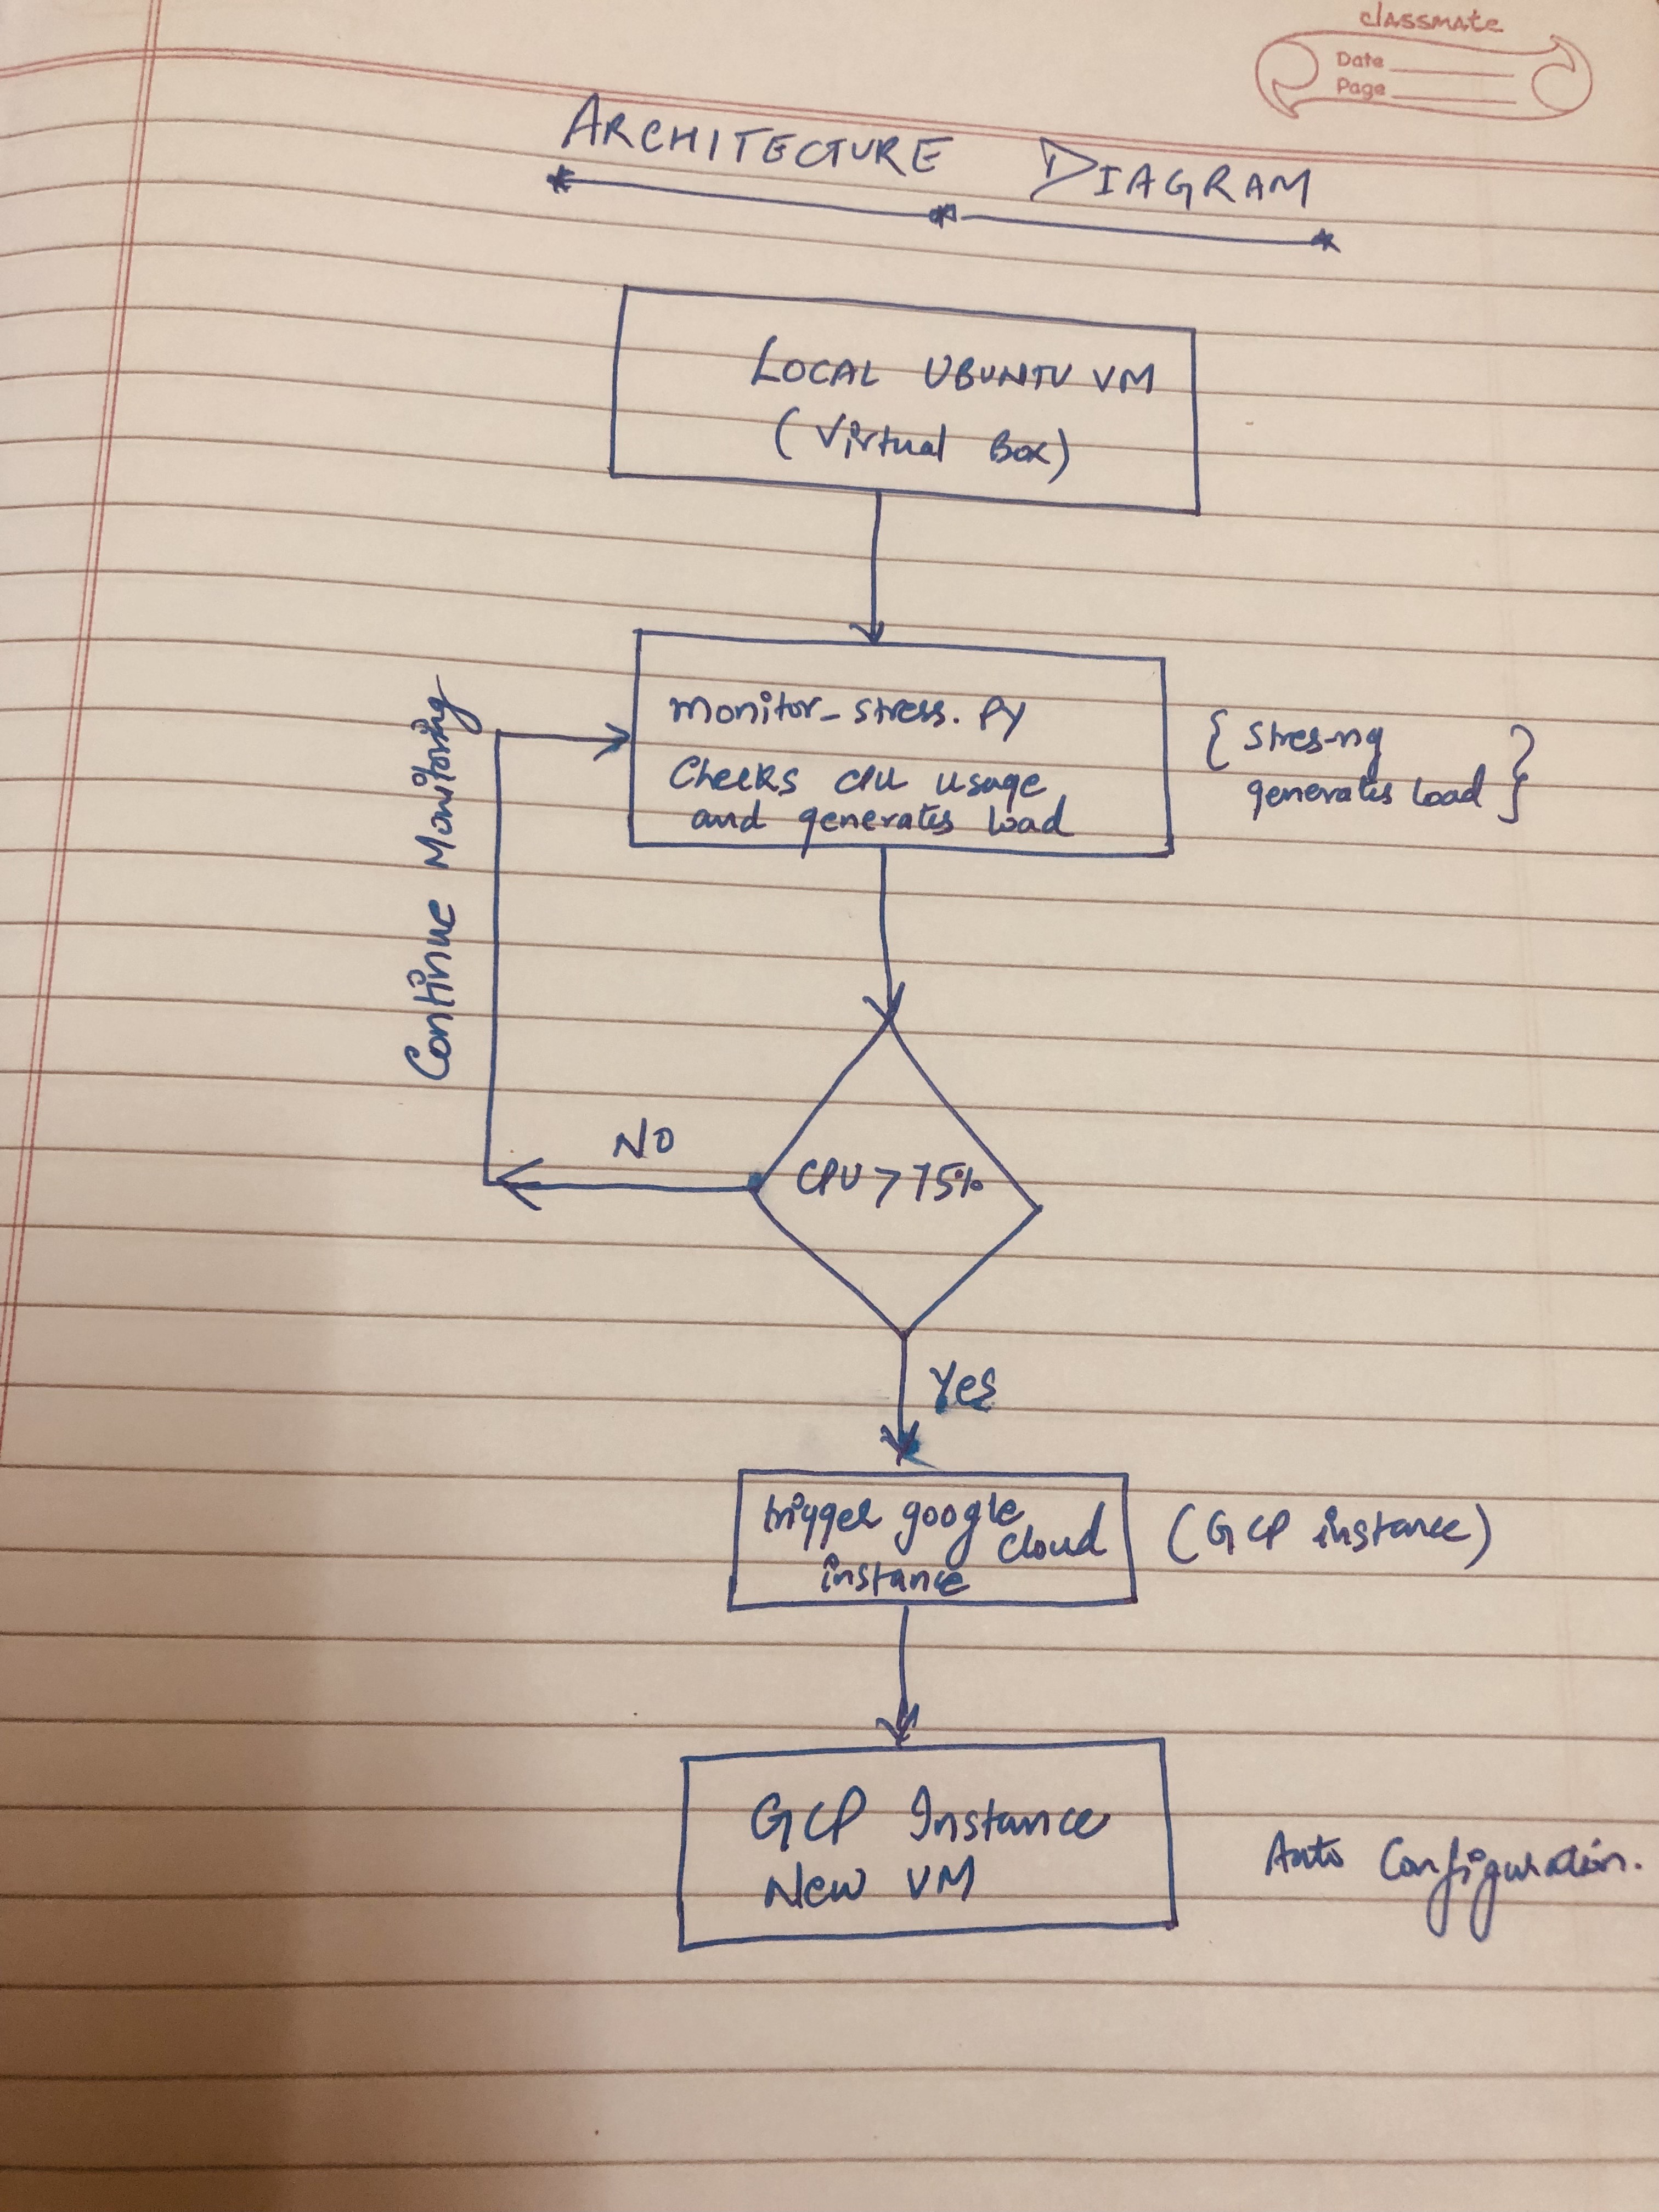 classmate
Date
Page
ARCHITECTURE DIAGRAM
LOCAL UBUNTU VM
(Virtual Box)
monitor_stress.py
Checks CPU usage
and generates load
{ stres-ng
generates load }
Continue Monitoring
NO
CPU > 75%
Yes
trigger google
cloud
instance
(GCP instance)
GCP Instance
New VM
Auto Configuration.